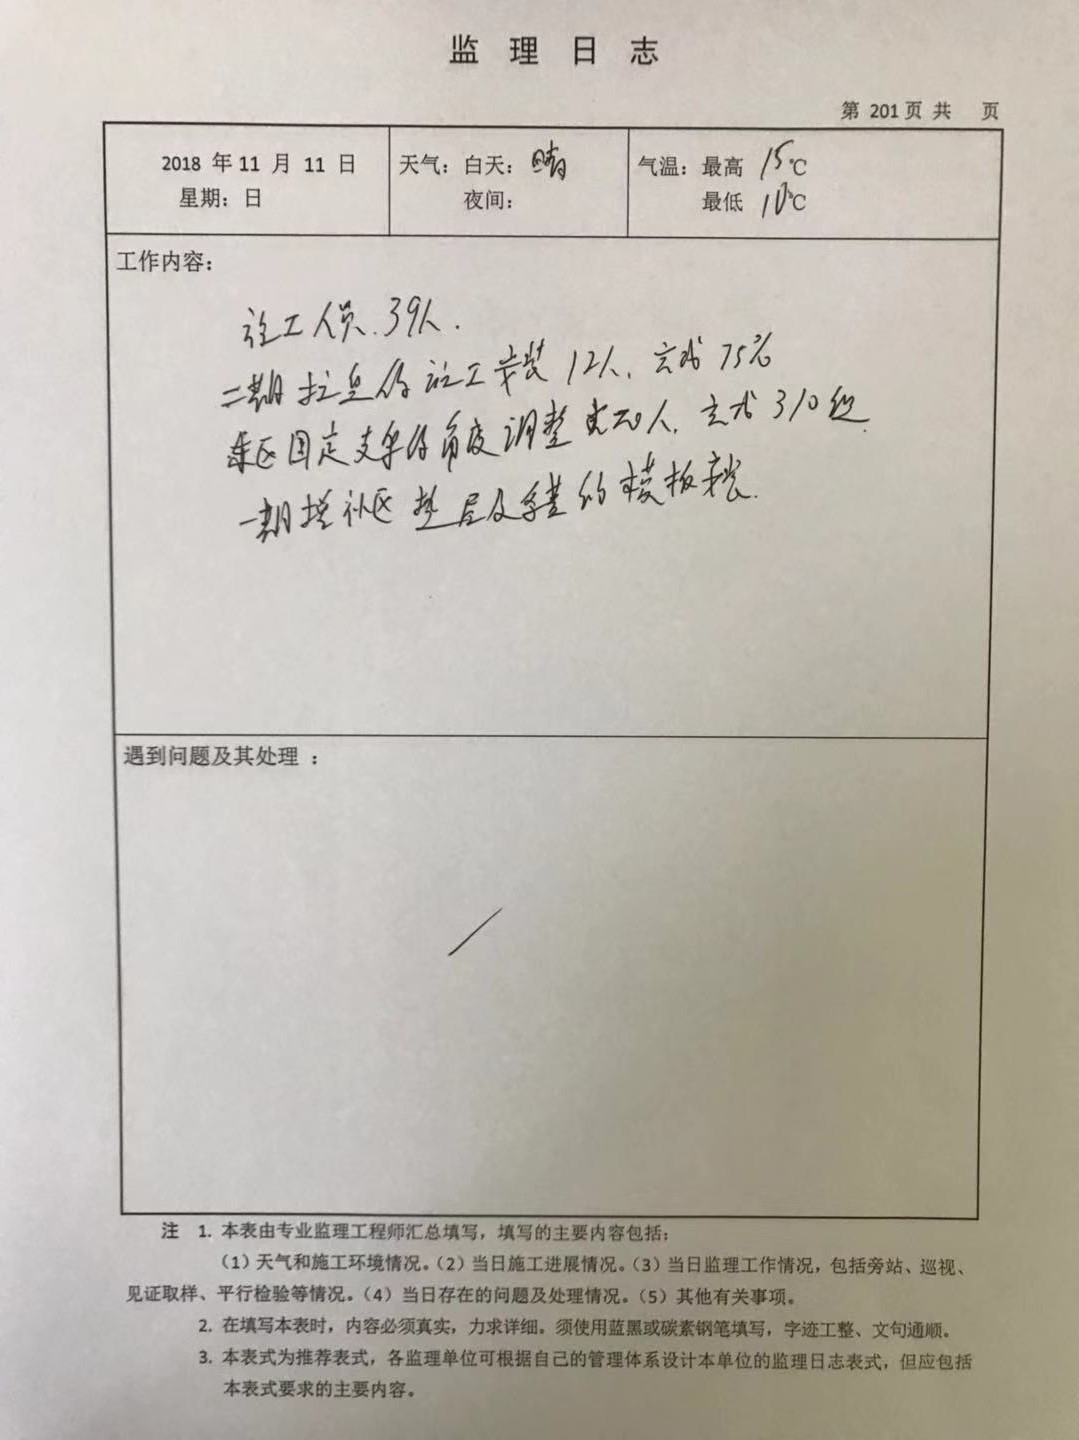 监 理 日 志
第 201页 共 页
2018 年 11 月 11 日
星期：日
天气：白天：晴
夜间：
气温：最高 15℃
最低 10℃
工作内容：
施工人员 39人.
二期 施工安装 12人, 完成 75%
区固定支架 角度调整 20人, 完成 310组.
一期增补区 垫层及 的模板安装.
遇到问题及其处理 ：
注 1. 本表由专业监理工程师汇总填写，填写的主要内容包括：
（1）天气和施工环境情况。（2）当日施工进展情况。（3）当日监理工作情况，包括旁站、巡视、
见证取样、平行检验等情况。（4）当日存在的问题及处理情况。（5）其他有关事项。
2. 在填写本表时，内容必须真实，力求详细。须使用蓝黑或碳素钢笔填写，字迹工整、文句通顺。
3. 本表式为推荐表式，各监理单位可根据自己的管理体系设计本单位的监理日志表式，但应包括
本表式要求的主要内容。